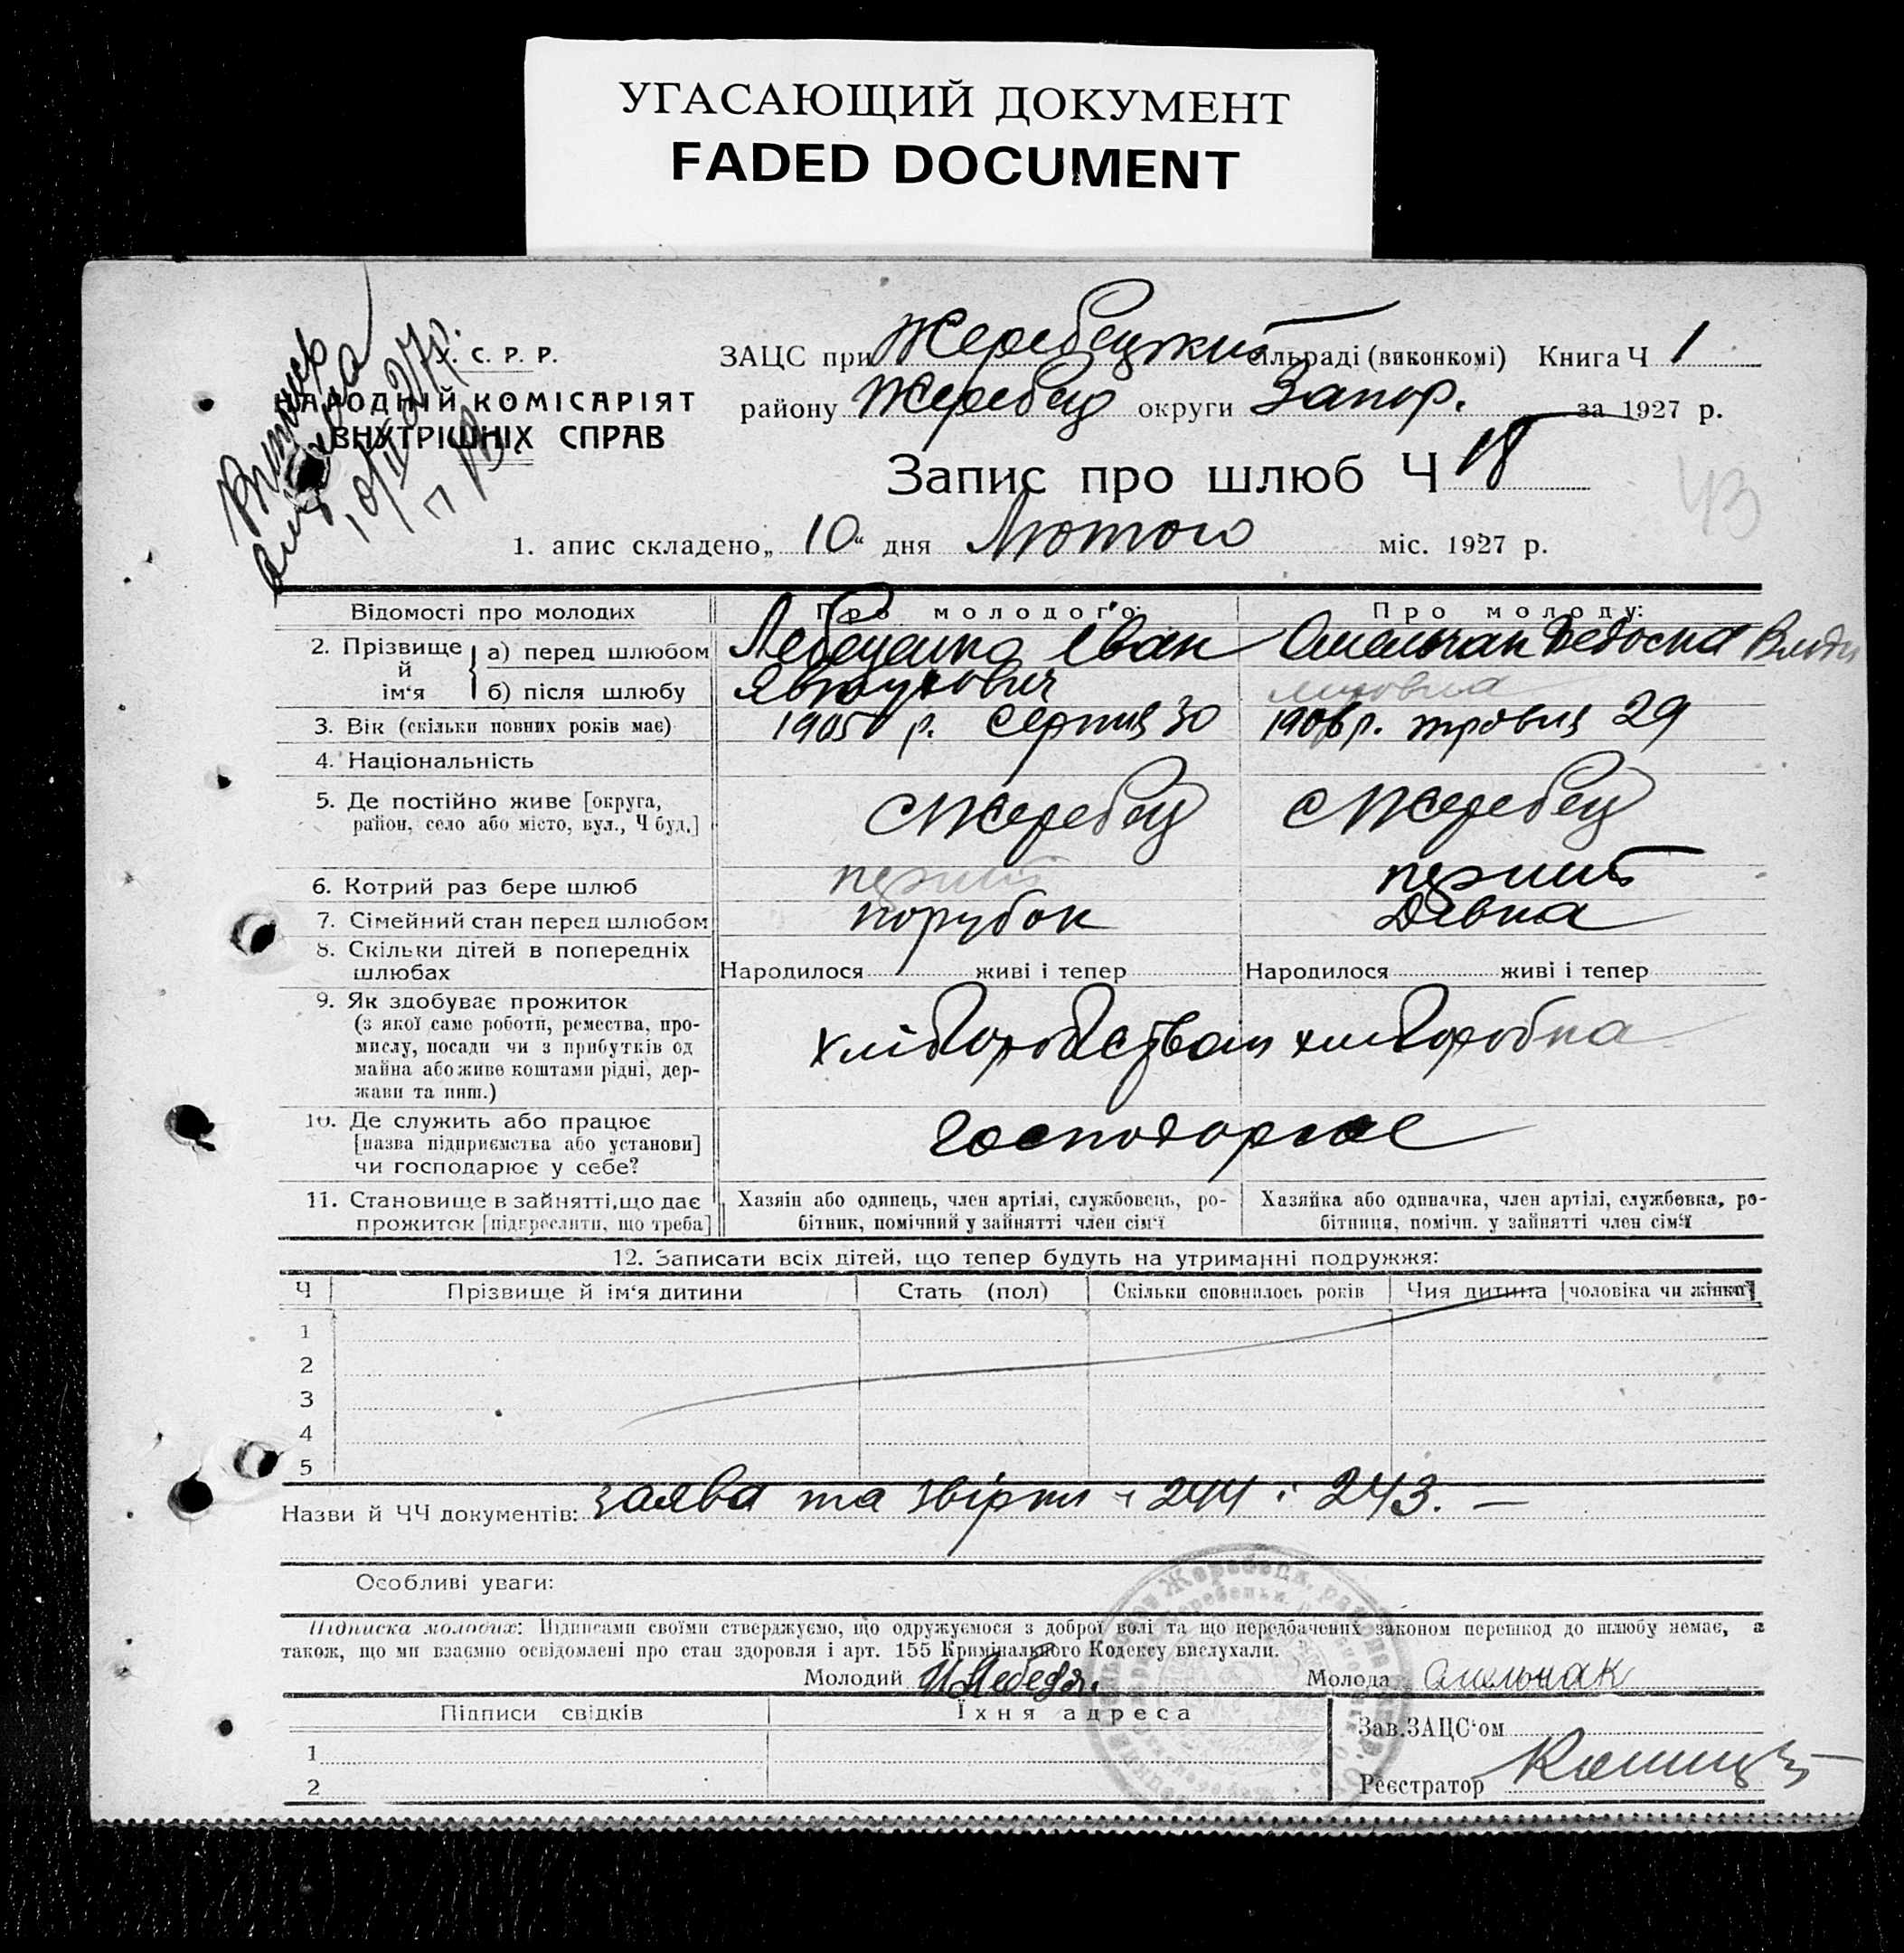 УГАСАЮЩИЙ ДОКУМЕНТ
FADED DOCUMENT
У. С. Р. Р.
НАРОДНІЙ КОМІСАРІЯТ
ВНУТРІШНІХ СПРАВ
10/II 27р.
ЗАЦС при Жеребецкий сільраді (виконкомі) Книга Ч 1
району Жеребец округи Запор. за 1927 р.
Запис про шлюб Ч 18
43
1. апис складено „ 10 “ дня Лютого міс. 1927 р.
Відомості про молодих Про молодого: Про молоду:
2. Прізвище й ім‘я а) перед шлюбом Іван Омельчак Федосия
б) після шлюбу Явтухович
3. Вік (скільки повних років має) 1905 р. серпня 30 1906 р. травня 29
4. Національність
5. Де постійно живе [округа, район, село або місто, вул., Ч буд.] с Жеребец с Жеребец
6. Котрий раз бере шлюб перший перший
7. Сімейний стан перед шлюбом порубок Дівка
8. Скільки дітей в попередніх шлюбах Народилося живі і тепер Народилося живі і тепер
9. Як здобуває прожиток
(з якої саме роботи, ремества, про-
мислу, посади чи з прибутків од
майна або живе коштами рідні, дер-
жави та инш.) хліборобством хліборобка
10. Де служить або працює
[назва підприємства або установи]
чи господарює у себе? господарює
11. Становище в зайнятті, що дає
прожиток [підкреслити, що треба]
Хазяїн або одинець, член артілі, службовець, ро-
бітник, помічний у зайнятті член сім‘ї
Хазяйка або одиначка, член артілі, службовка, ро-
бітниця, помічн. у зайнятті член сім‘ї
12. Записати всіх дітей, що тепер будуть на утриманні подружжя:
Ч Прізвище й ім‘я дитини Стать (пол) Скільки сповнилось років Чия дитина [чоловіка чи жінки]
1
2
3
4
5
Назви й ЧЧ документів: заява та звірки 244 і 243. —
Особливі уваги:
Підписка молодих: Підписами своїми стверджуємо, що одружуємося з доброї волі та що передбачених законом перешкод до шлюбу немає, а
також, що ми взаємно освідомлені про стан здоровля і арт. 155 Кримінального Кодексу вислухали.
Молодий И Лебедя. Молода Омельчак
Підписи свідків Їхня адреса Зав. ЗАЦС‘ом
1
2
Реєстратор